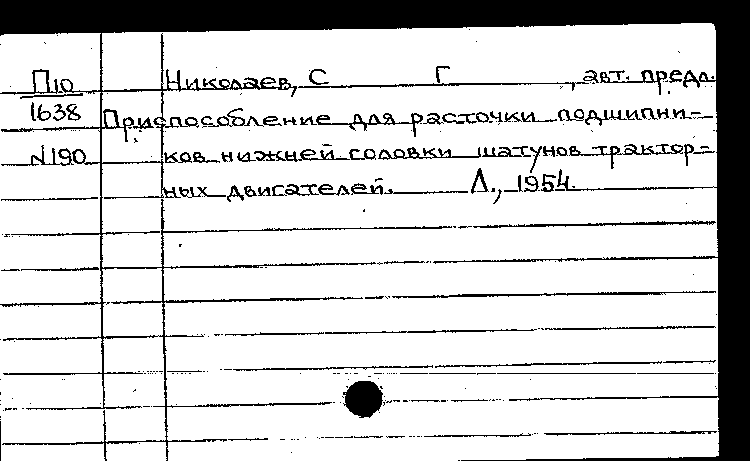 П10 Николаев, С Г , авт. предл.
1638 Приспособление для расточки подшипни-
N190 ков нижней головки шатунов трактор-
ных двигателей. Л., 1954.